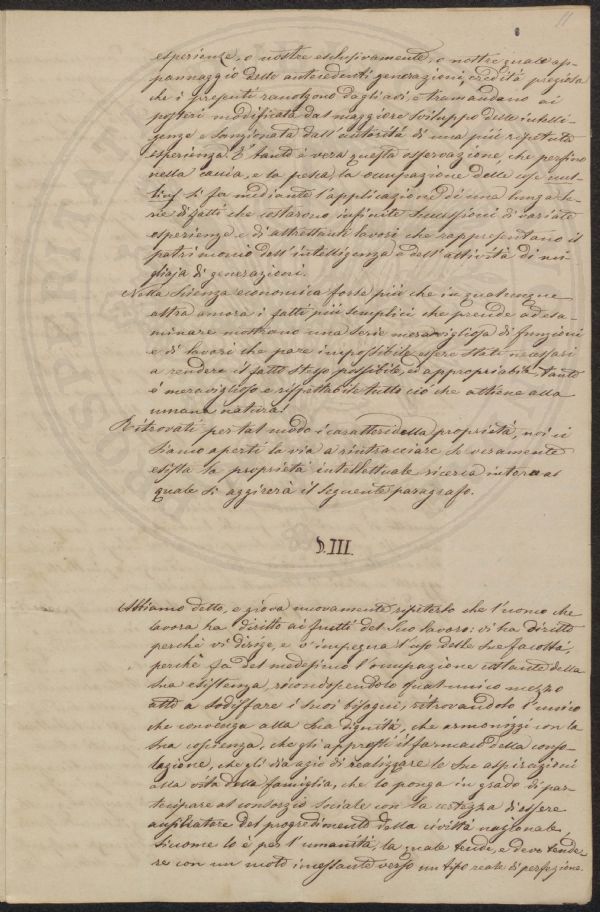 11
esperienze, o nostre esclusivamente, o nostre quale ap-
pannaggio delle antecedenti generazioni, eredità preziosa
che i presenti raccolgono dagli avi, e tramandano ai
posteri modificata dal maggiore sviluppo delle intelli-
genze e sanzionata dall'autorità di una più ripetuta
esperienza. E tanto è vera questa osservazione, che perfino
nella caccia, e la pesca, la occupazione delle cose nul-
lius si fa mediante l'applicazione di una lunga se-
rie di fatti che costarono infinite successioni di variate
esperienze e di altrettanti lavori che rappresentano il
patrimonio dell'intelligenza e dell'attività di mi-
gliaja di generazioni.
Nella scienza economica forse più che in qualunque
altra ancora i fatti più semplici che prende ad esa-
minare mostrano una serie meravigliosa di funzioni
e di lavori che pare impossibile essere stati necessari
a rendere il fatto stesso possibile, ed appropriabile. Tanto
è meraviglioso e rispettabile tutto ciò che attiene alla
umana natura!
Ritrovati per tal modo i caratteri della proprietà, noi ci
siamo aperti la via a rintracciare se veramente
esista la proprietà intellettuale ricerca intorno al
quale si aggirerà il seguente paragrafo.
§. III.
Abbiamo detto, e giova nuovamente ripeterlo che l'uomo che
lavora ha diritto ai frutti del suo lavoro: vi ha diritto
perchè vi dirige, e v'impegna l'uso delle sue facoltà,
perchè fa del medesimo l'occupazione costante della
sua esistenza, riconoscendolo qual unico mezzo
atto a sodisfare i suoi bisogni, ritrovandolo l'unico
che convenga alla sua dignità, che armonizzi con la
sua coscienza, che gli appresti il farmaco della conso-
lazione, che gli dia agio di realizzare le sue aspirazioni
alla vita della famiglia, che lo ponga in grado di par-
tecipare al consorzio sociale con la certezza di essere
ausiliatore del progredimento della civiltà nazionale,
siccome lo è per l'umanità, la quale tende, e deve tende-
re con un moto incessante verso un tipo reale di perfezione.